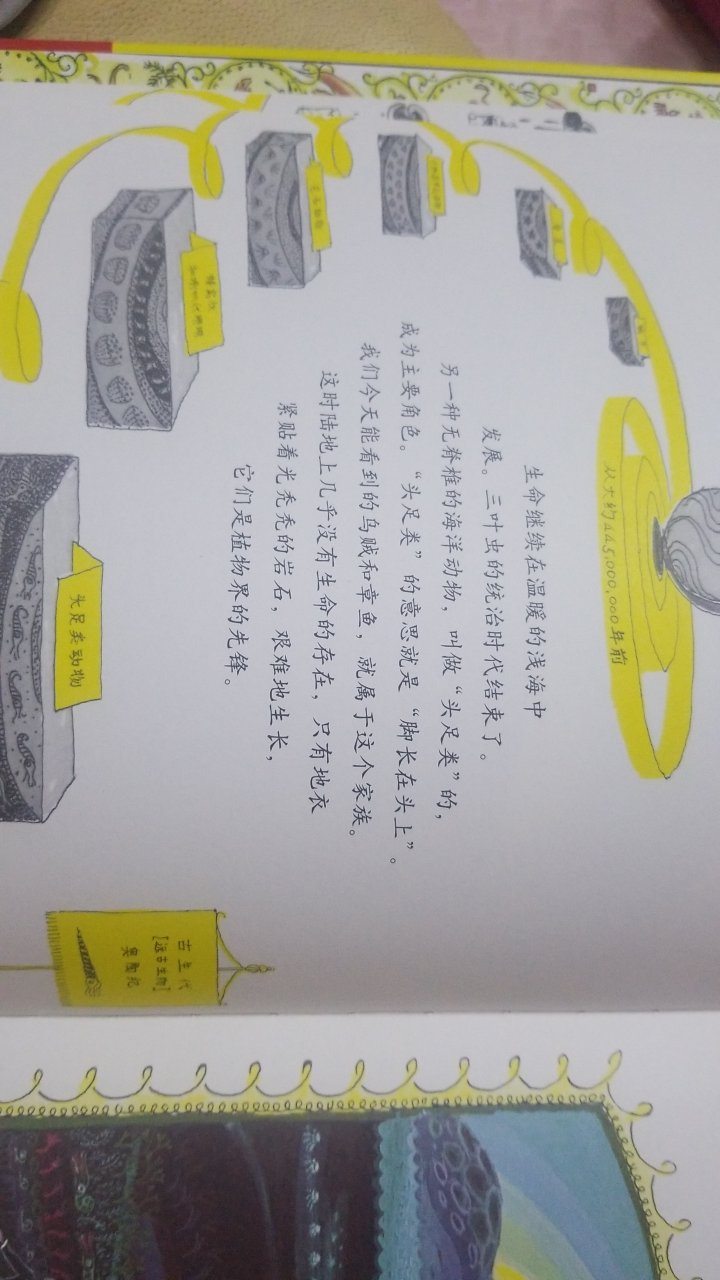 从大约445,000,000年前
生命继续在温暖的浅海中
发展。三叶虫的统治时代结束了。
另一种无脊椎的海洋动物，叫做“头足类”的，
成为主要角色。“头足类”的意思就是“脚长在头上”。
我们今天能看到的乌贼和章鱼，就属于这个家族。
这时陆地上几乎没有生命的存在，只有地衣
紧贴着光秃秃的岩石，艰难地生长，
它们是植物界的先锋。
头足类动物
古生代
[远古生物]
奥陶纪